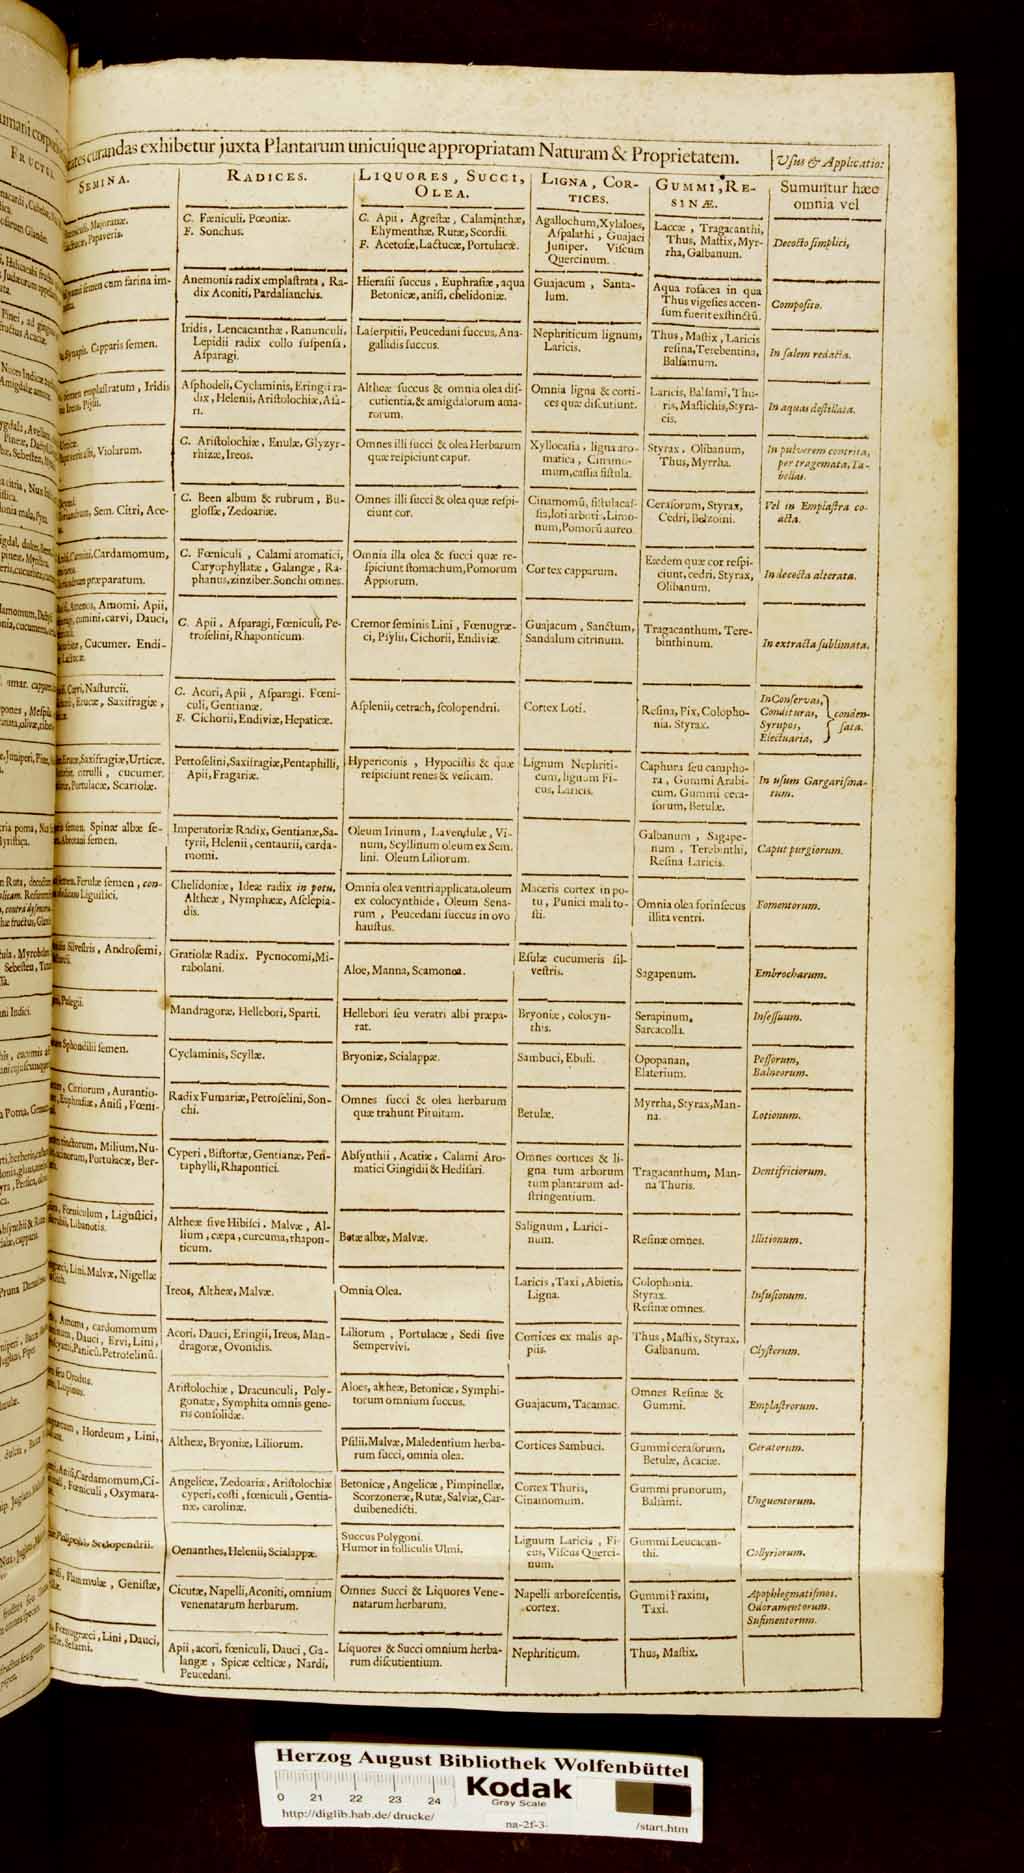 curandas exhibetur juxta Plantarum unicuique appropriatam Naturam & Proprietatem.
Vſus & Applicatio:
SEMINA.
RADICES.
LIQUORES, SUCCI,
OLEA.
LIGNA, COR-
TICES.
GUMMI, RE-
SINÆ.
Sumuntur hæc
omnia vel
Majoranæ.
Papaveris.
C. Fœniculi, Pœoniæ.
F. Sonchus.
C. Apii, Agreſtæ, Calaminthæ,
Ehymenthæ, Rutæ, Scordii.
F. Acetoſæ, Lactucæ, Portulacæ.
Agallochum, Xylaloes,
Aſpalathi, Guajaci
Juniper. Viſcum
Quercinum.
Laccæ, Tragacanthi,
Thus, Maſtix, Myr-
rha, Galbanum.
Decocto ſimplici,
ſemen cum farina im-
Anemonis radix emplaſtrata, Ra-
dix Aconiti, Pardalianchis.
Hierafii ſuccus, Euphraſiæ, aqua
Betonicæ, aniſi, chelidoniæ.
Guajacum, Santa-
lum.
Aqua roſacea in qua
Thus vigeſies accen-
ſum fuerit exſtinctū.
Compoſito.
Synapis. Capparis ſemen.
Iridis, Lencacanthæ, Ranunculi,
Lepidii radix collo ſuſpenſa,
Aſparagi.
Laſerpitii, Peucedani ſuccus, Ana-
gallidis ſuccus.
Nephriticum lignum,
Laricis.
Thus, Maſtix, Laricis
reſina, Terebentina,
Balſamum.
In ſalem redacta.
emplaſtratum, Iridis
Ireos, Pſyli.
Aſphodeli, Cyclaminis, Eringii ra-
dix, Helenii, Ariſtolochiæ, Aſa-
ri.
Altheæ ſuccus & omnia olea diſ-
cutientia, & amigdalorum ama-
rorum.
Omnia ligna & corti-
ces quæ diſcutiunt.
Laricis, Balſami, Thu-
ris, Maſtichis, Styra-
cis.
In aquas deſtillata.
Violarum.
C. Ariſtolochiæ, Enulæ, Glyzyr-
rhizæ, Ireos.
Omnes illi ſucci & olea Herbarum
quæ reſpiciunt caput.
Xyllocaſia, ligna aro-
matica, Cinamo-
mum, caſſia fiſtula.
Styrax, Olibanum,
Thus, Myrrha.
In pulverem contrita,
per tragemata, Ta-
bellas.
Sem. Citri, Ace-
C. Been album & rubrum, Bu-
gloſſæ, Zedoariæ.
Omnes illi ſucci & olea quæ reſpi-
ciunt cor.
Cinamomū, fiſtulacaſ-
ſia, loti arboris, Limo-
num, Pomorū aureo.
Ceraſorum, Styrax,
Cedri, Belzoini.
Vel in Emplaſtra co-
acta.
Cardamomum,
præparatum.
C. Fœniculi, Calami aromatici,
Caryophyllatæ, Galangæ, Ra-
phanus, zinziber. Sonchi omnes.
Omnia illa olea & ſucci quæ re-
ſpiciunt ſtomachum, Pomorum
Appiorum.
Cortex capparum.
Eædem quæ cor reſpi-
ciunt, cedri, Styrax,
Olibanum.
In decocta alterata.
Ameos, Amomi, Apii,
cumini, carvi, Dauci,
Cucumer. Endi-
Lactucæ.
C. Apii, Aſparagi, Fœniculi, Pe-
troſelini, Rhaponticum.
Cremor ſeminis Lini, Fœnugræ-
ci, Pſylii, Cichorii, Endiviæ.
Guajacum, Sanctum,
Sandalum citrinum.
Tragacanthum, Tere-
binthinum.
In extracta ſublimata.
Carvi, Naſturcii.
Erucæ, Saxifragiæ,
C. Acori, Apii, Aſparagi. Fœni-
culi, Gentianæ.
F. Cichorii, Endiviæ, Hepaticæ.
Aſplenii, cetrach, ſcolopendrii.
Cortex Loti.
Reſina, Pix, Colopho-
nia. Styrax.
In Conſervas,
Condituras,
Syrupos,
Electuaria,
conden-
ſata.
Saxifragiæ, Urticæ,
citrulli, cucumer.
Portulacæ, Scariolæ.
Petroſelini, Saxifragiæ, Pentaphilli,
Apii, Fragariæ.
Hypericonis, Hypociſtis & quæ
reſpiciunt renes & veſicam.
Lignum Nephriti-
cum, lignum Fi-
cus, Laricis.
Caphura ſeu campho-
ra, Gummi Arabi-
cum, Gummi cera-
ſorum, Betulæ.
In uſum Gargariſma-
tum.
ſemen. Spinæ albæ ſe-
Abrotani ſemen.
Imperatoriæ Radix, Gentianæ, Sa-
tyrii, Helenii, centaurii, carda-
momi.
Oleum Irinum, Lavendulæ, Vi-
num, Scyllinum oleum ex Sem.
lini. Oleum Liliorum.
Galbanum, Sagape-
num, Terebinthi,
Reſina Laricis.
Caput purgiorum.
Ferulæ ſemen, con-
Liguſtici.
Chelidoniæ, Ideæ radix in potu,
Altheæ, Nymphææ, Aſclepia-
dis.
Omnia olea ventri applicata, oleum
ex colocynthide, Oleum Sena-
rum, Peucedani ſuccus in ovo
hauſtus.
Maceris cortex in po-
tu, Punici mali to-
ſti.
Omnia olea forinſecus
illita ventri.
Fomentorum.
Silveſtris, Androſemi,
Gratiolæ Radix. Pycnocomi, Mi-
rabolani.
Aloe, Manna, Scamonea.
Eſulæ cucumeris ſil-
veſtris.
Sagapenum.
Embrocharum.
Pulegii.
Mandragoræ, Hellebori, Sparti.
Hellebori ſeu veratri albi præpa-
rat.
Bryoniæ, colocyn-
this.
Serapinum,
Sarcacolla.
Inſeſſuum.
Sphondilii ſemen.
Cyclaminis, Scyllæ.
Bryoniæ, Scialappæ.
Sambuci, Ebuli.
Opopanan,
Elaterium.
Peſſorum,
Balneorum.
Citriorum, Aurantio-
Euphraſiæ, Aniſi, Fœni-
Radix Fumariæ, Petroſelini, Son-
chi.
Omnes ſucci & olea herbarum
quæ trahunt Pituitam.
Betulæ.
Myrrha, Styrax, Man-
na.
Lotionum.
tinctorum, Milium, Nu-
Portulacæ, Ber-
Cyperi, Biſtortæ, Gentianæ, Pen-
taphylli, Rhapontici.
Abſynthii, Acatiæ, Calami Aro-
matici Gingidii & Hediſari.
Omnes cortices & li-
gna tum arborum
tum plantarum ad-
ſtringentium.
Tragacanthum, Man-
na Thuris.
Dentifriciorum.
Fœniculum, Liguſtici,
Libanotis.
Altheæ ſive Hibiſci, Malvæ, Al-
lium, cæpa, curcuma, rhapon-
ticum.
Betæ albæ, Malvæ.
Salignum, Larici-
num.
Reſinæ omnes.
Illitionum.
Lini, Malvæ, Nigellæ
Ireos, Altheæ, Malvæ.
Omnia Olea.
Laricis, Taxi, Abietis,
Ligna.
Colophonia.
Styrax.
Reſinæ omnes.
Infuſionum.
Amomi, cardomomum
Dauci, Ervi, Lini,
Panicū, Petroſelinū.
Acori, Dauci, Eringii, Ireos, Man-
dragoræ, Ovonidis.
Liliorum, Portulacæ, Sedi ſive
Sempervivi.
Cortices ex malis ap-
piis.
Thus, Maſtix, Styrax,
Galbanum.
Clyſterum.
ſeu Orobus.
Lupinus.
Ariſtolochiæ, Dracunculi, Poly-
gonatæ, Symphita omnis gene-
ris conſolidæ.
Aloes, altheæ, Betonicæ, Symphi-
torum omnium ſuccus.
Guajacum, Tacamac.
Omnes Reſinæ &
Gummi.
Emplaſtrorum.
Hordeum, Lini,
Altheæ, Bryoniæ, Liliorum.
Pſilii, Malvæ, Maledentium herba-
rum ſucci, omnia olea.
Cortices Sambuci.
Gummi ceraſorum,
Betulæ, Acaciæ.
Ceratorum.
Cardamomum, Ci-
Fœniculi, Oxymara-
Angelicæ, Zedoariæ, Ariſtolochiæ
cyperi, coſti, fœniculi, Gentia-
næ, carolinæ.
Betonicæ, Angelicæ, Pimpinellæ,
Scorzoneræ, Rutæ, Salviæ, Car-
duibenedicti.
Cortex Thuris,
Cinamomum.
Gummi prunorum,
Balſami.
Unguentorum.
Polipodii, Scolopendrii.
Oenanthes, Helenii, Scialappæ.
Succus Polygoni.
Humor in folliculis Ulmi.
Lignum Laricis, Fi-
cus, Viſcus Querci-
num.
Gummi Leucacan-
thi.
Collyriorum.
Flammulæ, Geniſtæ,
Cicutæ, Napelli, Aconiti, omnium
venenatarum herbarum.
Omnes Succi & Liquores Vene-
natarum herbarum.
Napelli arboreſcentis,
cortex.
Gummi Fraxini,
Taxi.
Apophlegmatiſmos.
Odoramentorum.
Suffimentorum.
Fœnugræci, Lini, Dauci,
Seſami.
Apii, acori, fœniculi, Dauci, Ga-
langæ, Spicæ celticæ, Nardi,
Peucedani.
Liquores & Succi omnium herba-
rum diſcutientium.
Nephriticum.
Thus, Maſtix.
Herzog August Bibliothek Wolfenbüttel
Kodak
Gray Scale
0 21 22 23 24
http://diglib.hab.de/drucke/
na-2f-3-
/start.htm